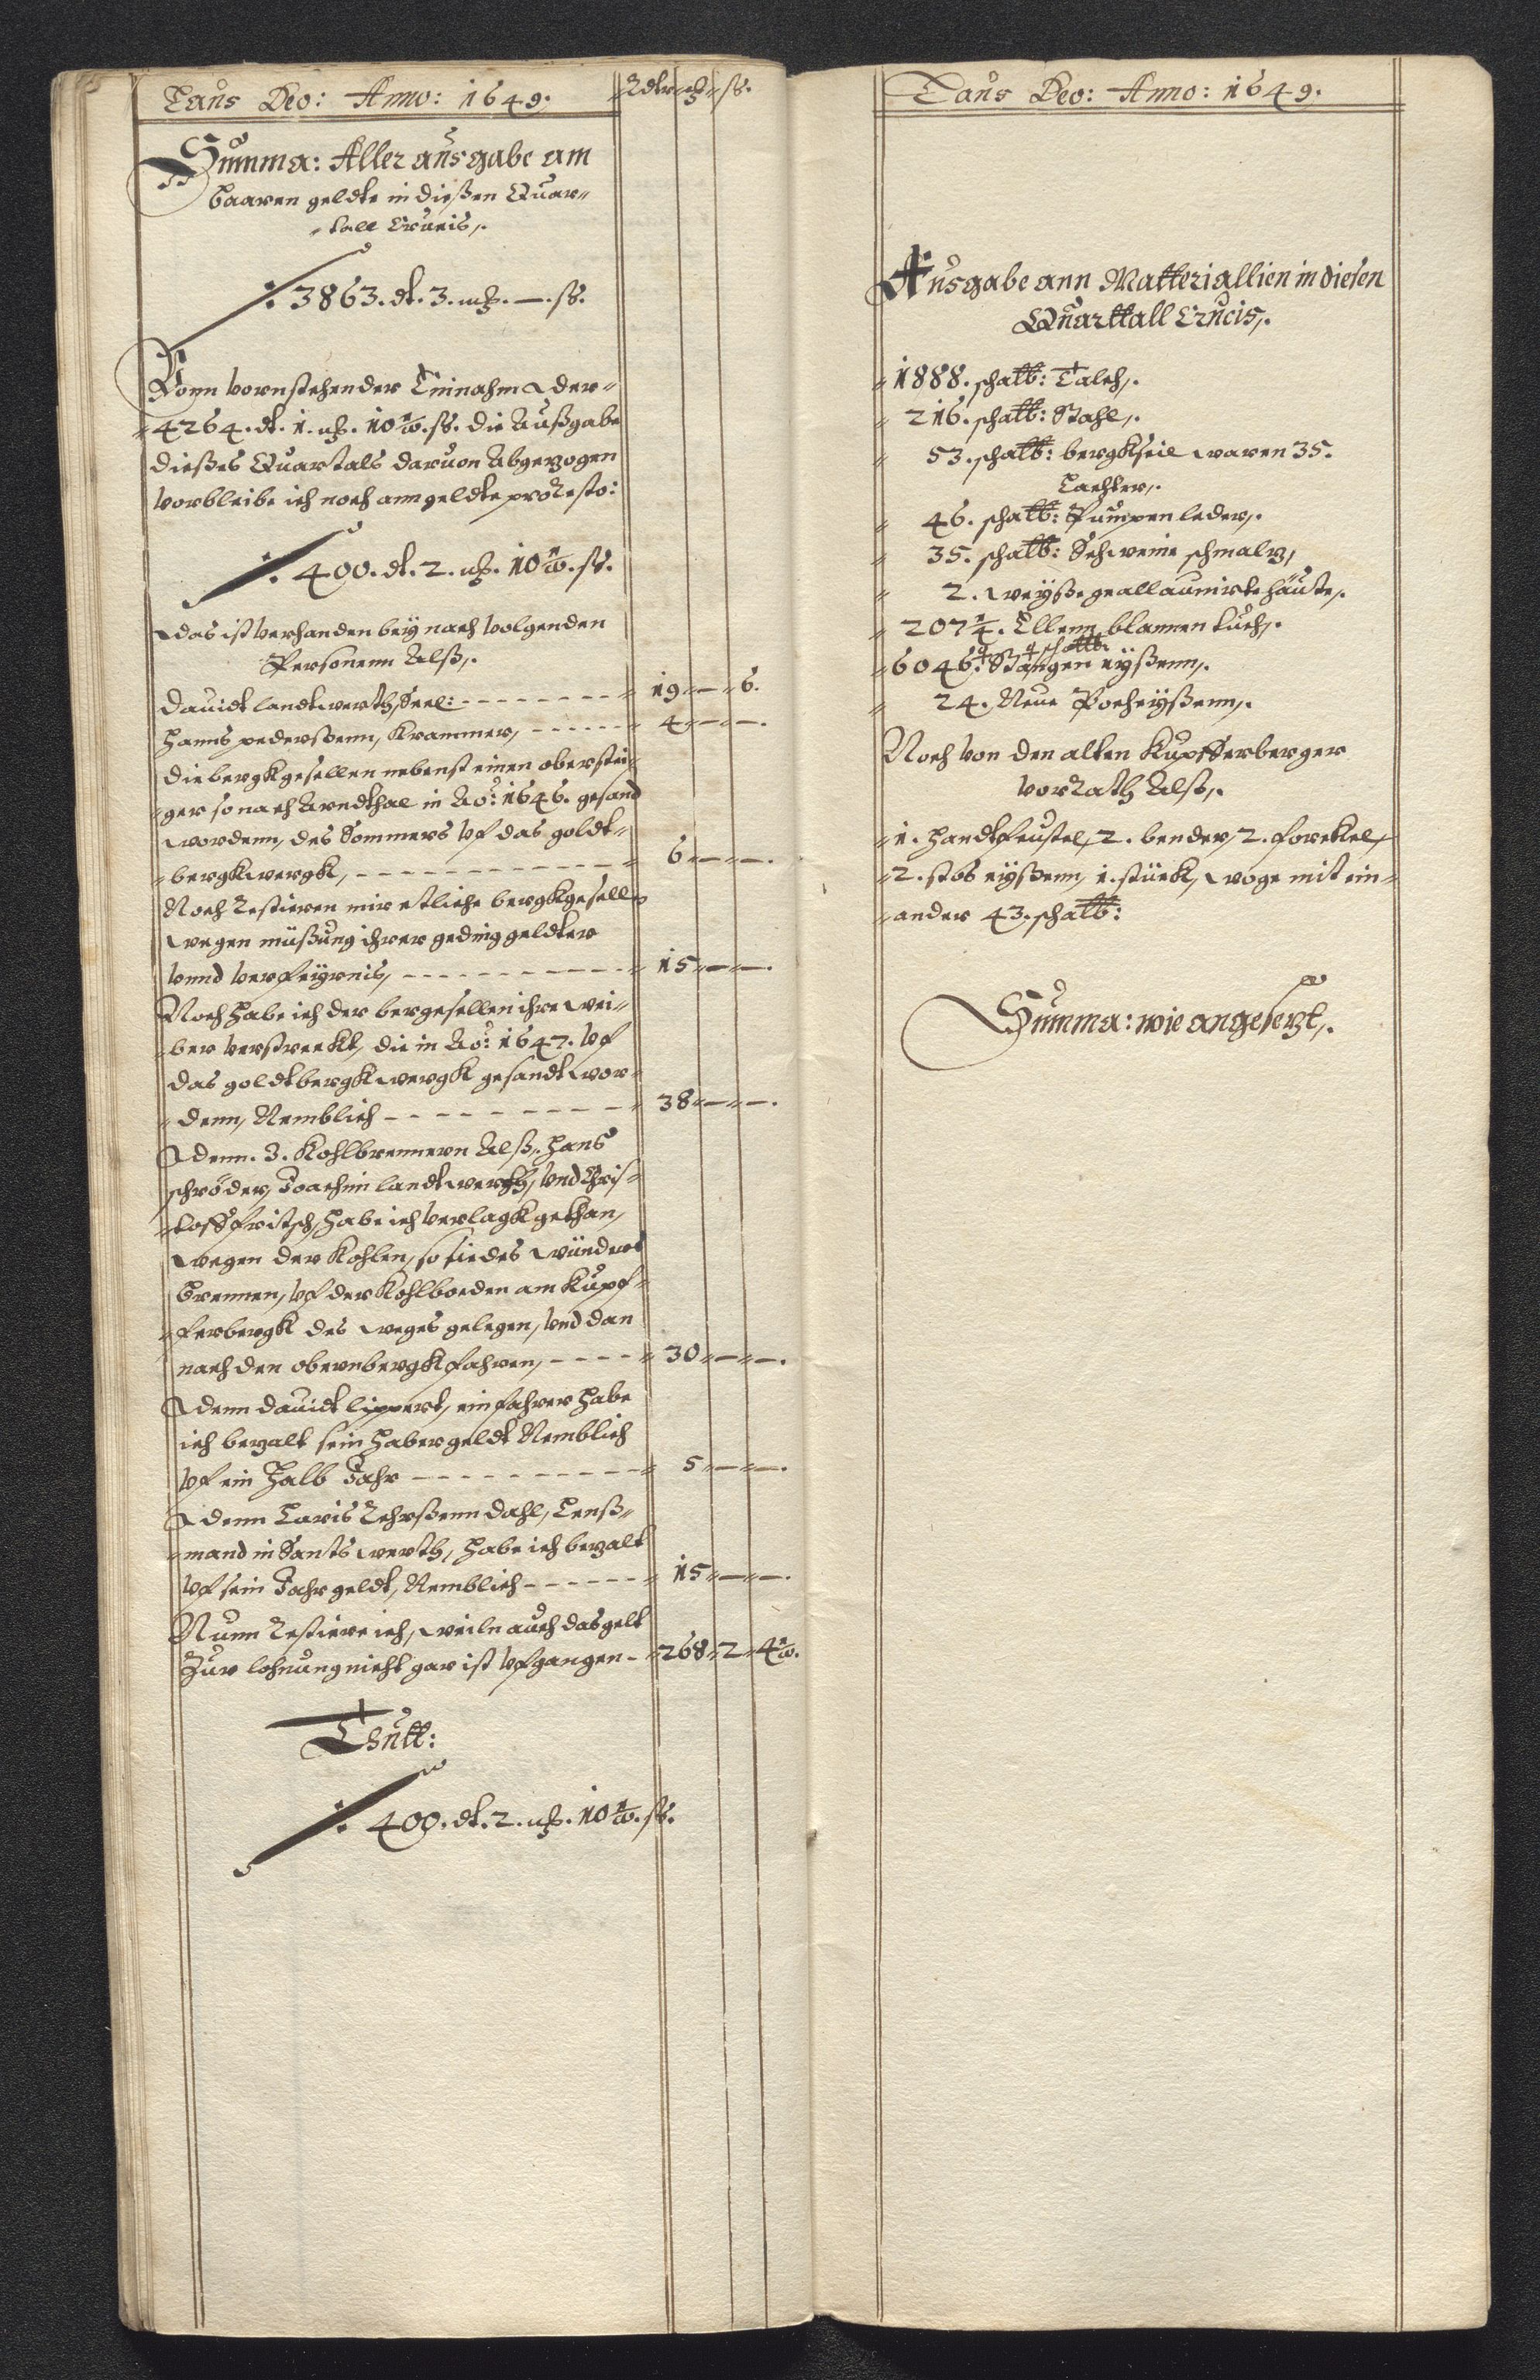 Laus Deo: Anno: 1649.
Rdlr mk ß.
Summa: Aller ausgabe am
baaren geldte in dießen Quar-
tall Crucis,.
3863. dl. 3. mk. —. ß.
Vonn vornstehender Einnahm der
4264. dl. 1. mk. 10½. ß. die Außgabe
dießes Quartals daruon Abgezogen
Vorbleibe ich noch ann geldte pro Resto:
400. dl. 2. mk. 10½. ß.
das ist Verhanden bey nach Volgenden
Personenn Alß,.
Dauidt landtwerth, Seel: 19 — 6.
Hanns pederßenn, Krammer, 4 — —.
Die bergkgesellen nebenst einen oberstei-
ger so nach Arndthal in Ao: 1646. gesand
wordenn, des Sommers Vf das goldt-
bergkwergk, 6 — —.
Noch Restieren mir etliche bergkgesellen
wegen müßung ihrer geding geldter
Vnnd Verfeyrnis, 15 — —.
Noch Habe ich der bergesellen ihre wei-
ber Verstreckt, die in Ao: 1647. Vf
das goldtbergkwergk gesandt wor-
denn, Nemblich 38 — —.
denn. 3. Kohlbrennern Alß,. Hans
schröder, Joachim landtwerth, Vnd Chris-
toff fritsch, Habe ich Verlagk gethan,
wegen der Kohlen, so sie des wünders
brennen, Vf der Kohlboeden am Kupf-
ferbergk des weges gelegen, Vnd dan
nach den obernbergk fahren, 30 — —.
denn dauidt lippert, einfahrer Habe
ich bezalt sein Haber geldt Nemblich
Vf ein Halb Jahr 5 — —.
denn Laris Rehrßenn dahl, Lenß-
mand in Santswerth, Habe ich bezalt
Vf sein Jahrgeldt, Nemblich 15 — —.
Nunn Restiere ich, weiln auch das gelt
Zur lohnung nicht gar ist Vfgangen 268 2 4½.
Thutt:
400. dl. 2. mk. 10½. ß.
Laus Deo: Anno: 1649.
Ausgabe ann Matteriallien in diesen
Quarttall Crucis,.
1888. schatt: Talch,.
216. schatt: Stahl,.
53. schatt: bergkseil waren 35.
Lachter,.
46. schatt: Pumpen leder,.
35. schatt: Schweine schmalz,
2. weyße geallaunirte häute,.
207¼. Ellenn blannen tuch,.
6046. Stangen eyßenn,.
24. Neue Pocheyßenn,.
Noch Von den alten Kupfferberger
Vorrath Alß,.
1. Handtfeustel, 2. bender, 2. forckel,
2. stos eyßenn, 1. stück, woge mit ein-
ander 43. schatt:
Summa: wie angesetzt,.